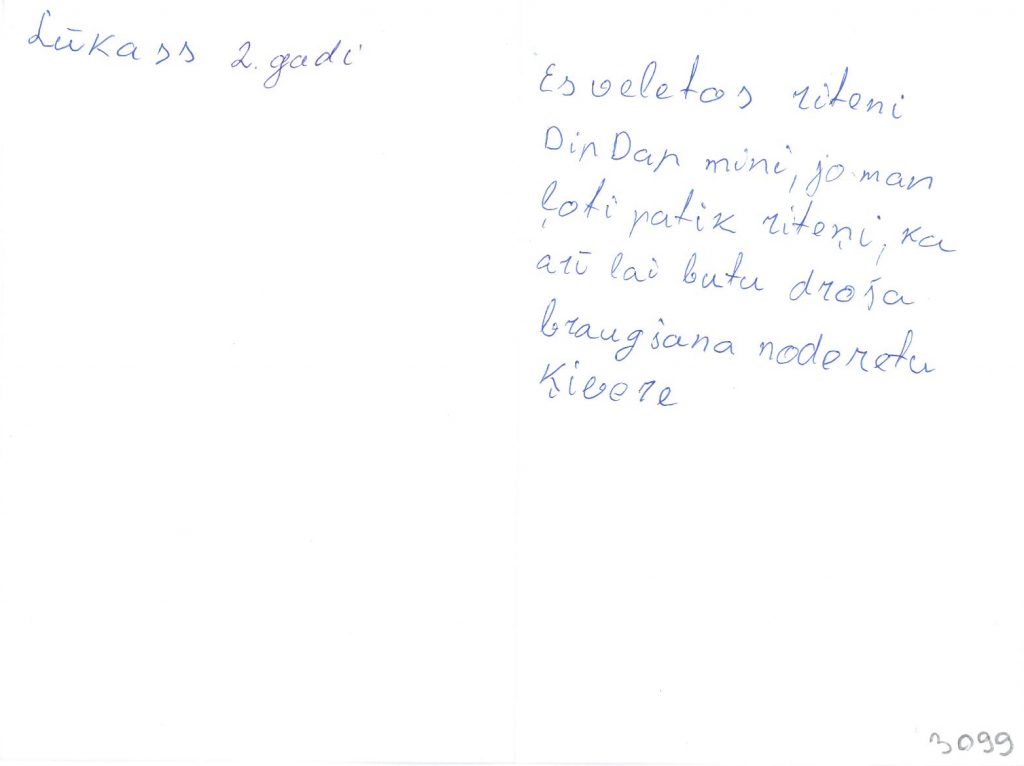 Lūkass 2.gadi
Es veletos riteni
DipDap mini, jo man
ļoti patik riteņi, ka
arī lai butu droša
braugšana noderetu
Ķivere
3099